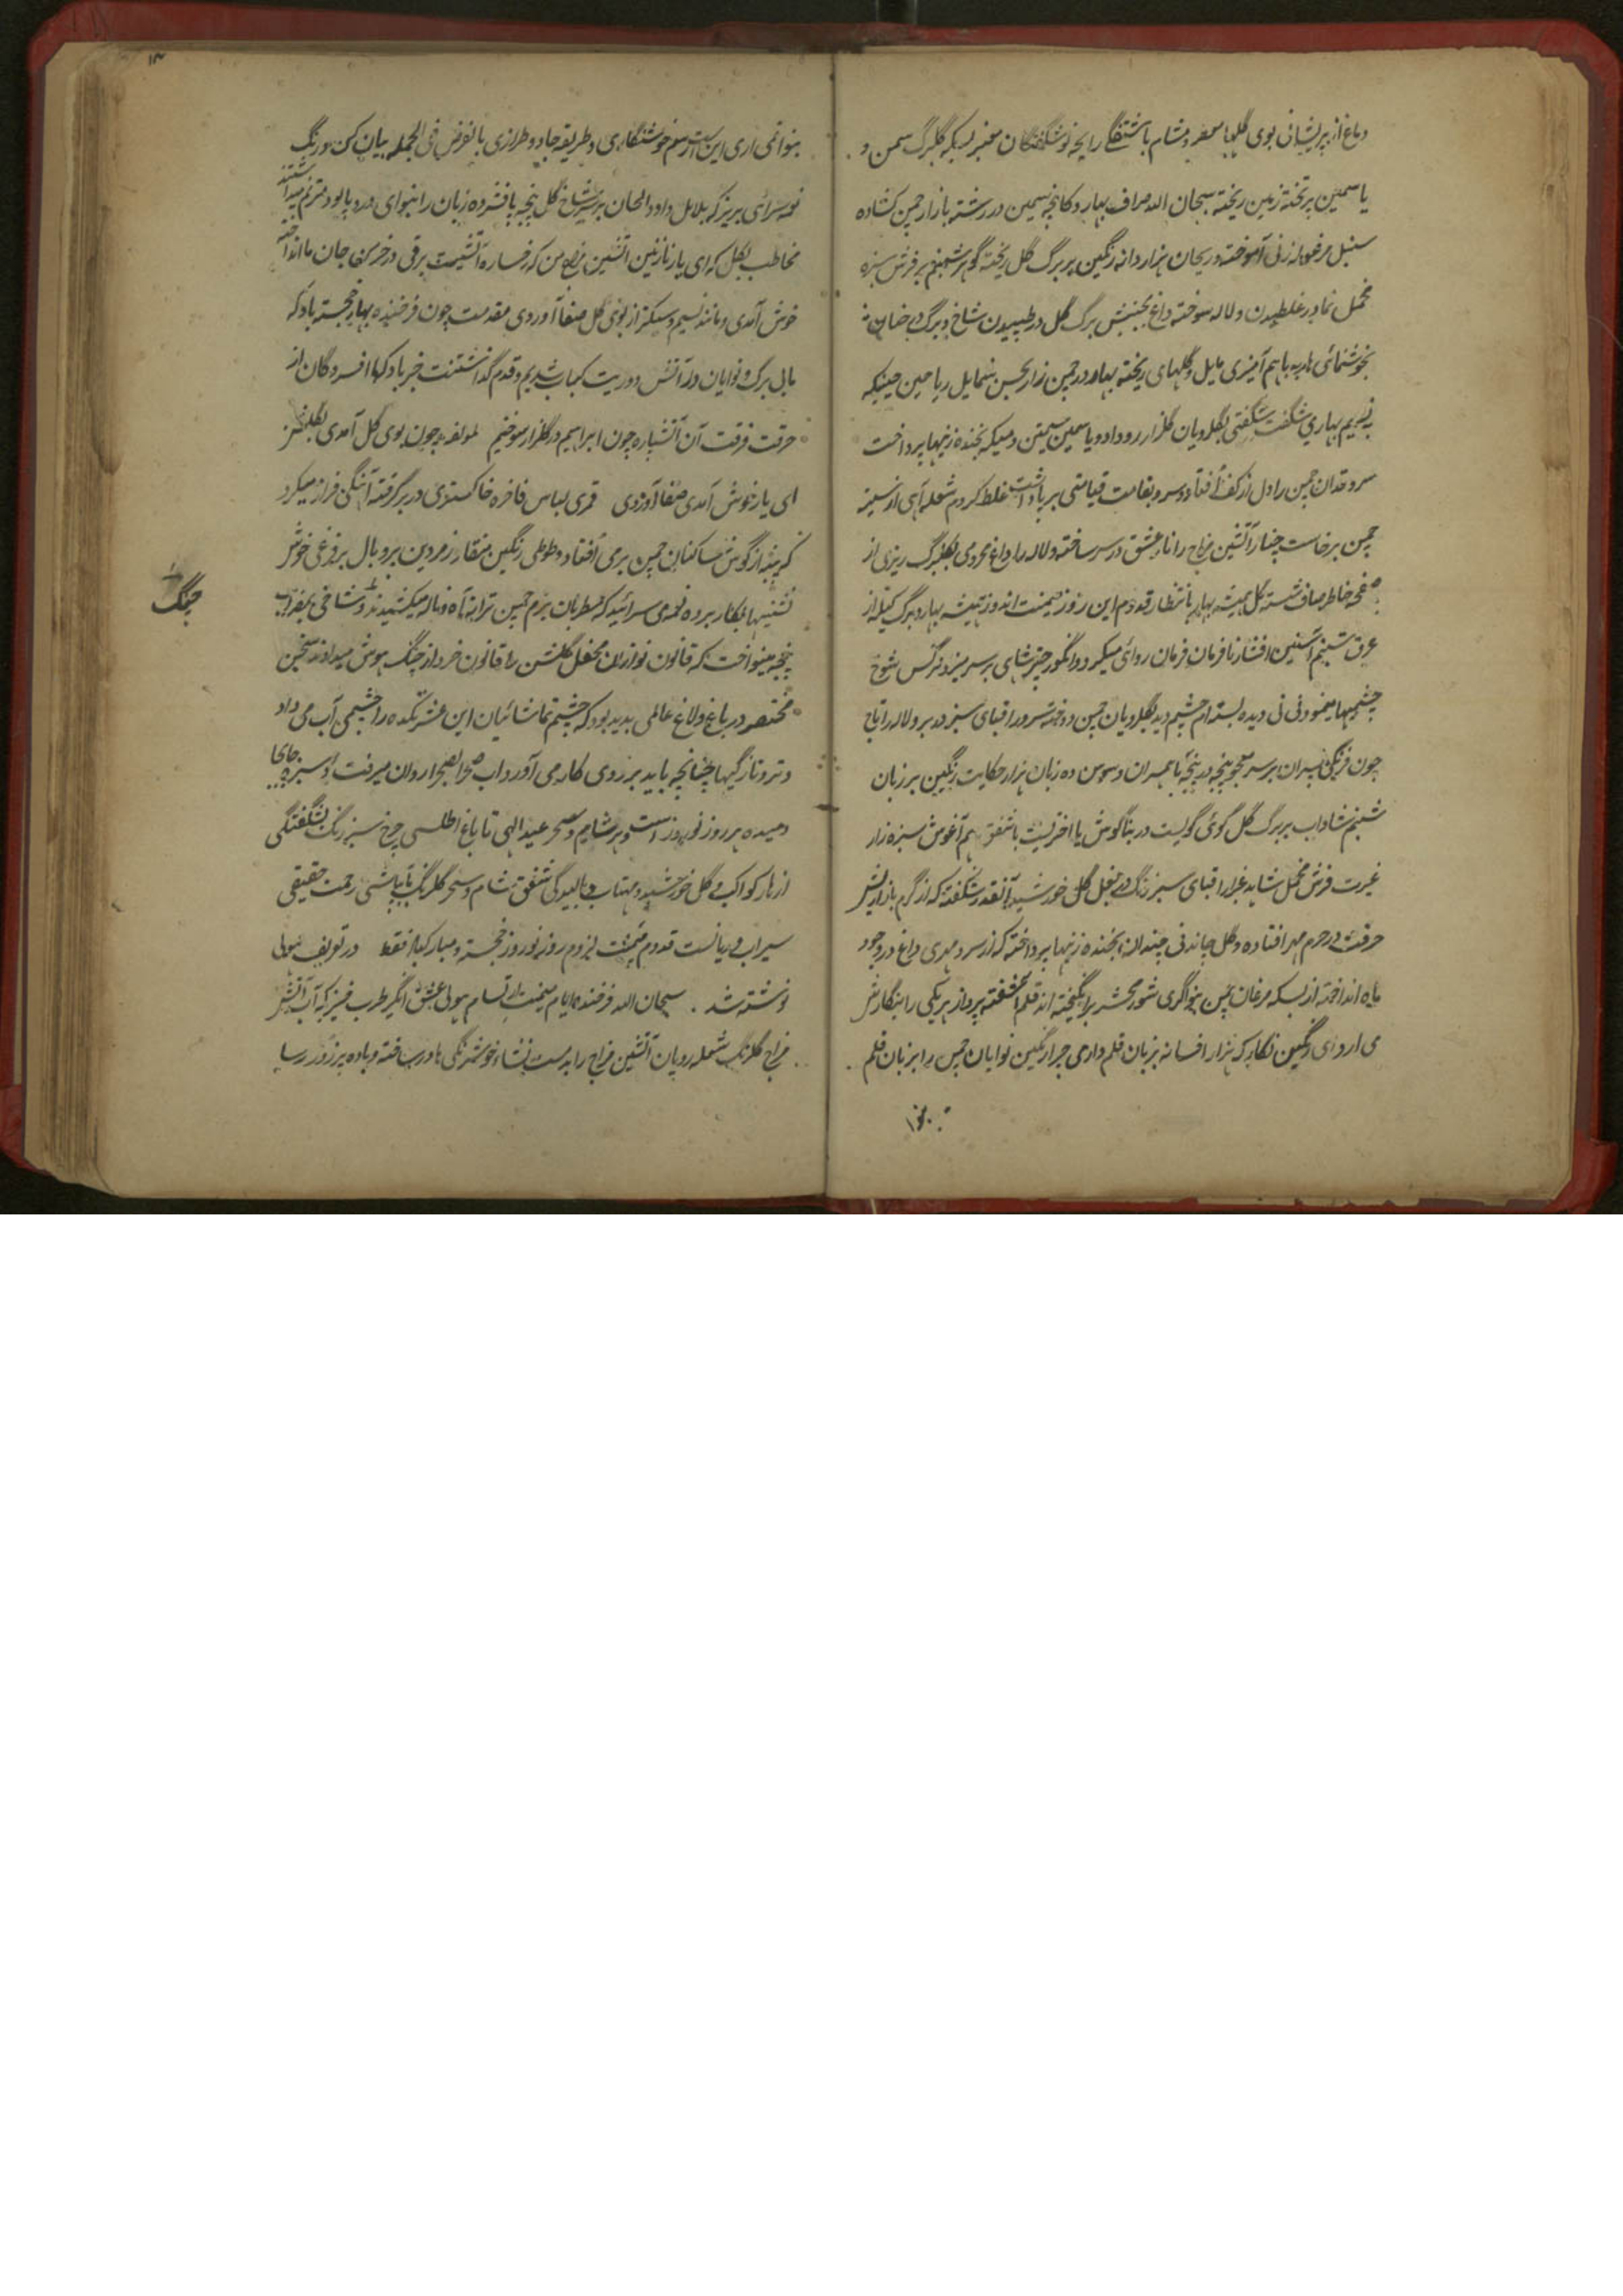 دماغ از پریشانی بوی گلها معطر و مشام باشتفگی رایحه نوشگفتگان معنبر بسکه گلبرگ سمن و
یاسمین بر تخته زمین ریخته سبحان الله صراف بهار دکانچه سیمین در رشته بازار چمن کشاده
سنبل مرغوله زنی آموخته و ریحان هزار دانه رنگین بر برگ گل ریخته گوهر شبنم بر فرش سبزه
مخمل نما در غلطیدن و لاله سوخته داغ بجنبش برگ گل در طپیدن شاخ و برگ درختان
بخوشنمائی باهم آمیزی مایل و گلهای ریخته بهار در چمن زار بحسن شمایل ریاحین
نسیم بهاری شگفت شگفتی بگلرویان گلزار رو داد و یاسمین سیمتن و سیکه بخنده زنیها پرداخت
سروقدان چمن را دل از کف افتاد و سرو بقامت قیامتی برپا داشت غلط کردم شعله آهی از سینه
چمن برخاست چنار آتشین مزاج را نایره عشق در سر ساخته و لاله را داغ محرومی بجگر برگ ریزی از
صفحه خاطر صاف شسته گل همیشه بهار بانتظار قدوم این روز میمنت اندوز همیشه بهار و برگ کیله از
عرق شبنم آستین افشار نافرمان فرمان روائی میکرد و انگور چتر شاهی بر سر میزد نرگس شوخ
چشمیها مینمود نی نی دیده بسته ام چشم دید بگلرویان چمن دوخته سرو را قبای سبز در بر و لاله را تاج
چون فرنگی پسران بر سر پنجه در پنجه با همسران و سوسن ده زبان هزار حکایت رنگین بر زبان
شبنم شاداب بر برگ گل گوئی گویست در بناگوش یا اختریست با شفق هم آغوش سبزه زار
غیرت فرش مخمل شاهد غبرا را قبای سبز رنگ در بغل گل خورشید آنقدر شگفته که از گرم بازاریش
حرقت در جرم مهر افتاده و گل چاندنی چندان بخنده زنیها پرداخته که از سرد مهری داغ در وجود
ماه انداخته از بسکه مرغان چمن بنواگری شور محشر برانگیخته اند قلم آشفته پرداز هر یکی را بنگارش
می آرد ای رنگین نگار که هزار افسانه بزبان قلم داری چرا رنگین نوایان چمن را بزبان قلم
بنواتی
بنوا نمی آری این است رسم خوشنگاری و طریقه جادو طرازی بالفرض فی الجمله بیان کن و رنگ
نغمه سرائی بریز که بلابل داود الحان بر سر شاخ گل پنجه پا فشرده زبان را بنوای درد پالود مترنم میداشتند
مخاطب بگل که ای یار نازنین آتشین مزاج من که رخساره آتشینت برقی در خرمن جان ما انداخته
خوش آمدی و مانند نسیم و سبکتر از بوی گل صفا آوردی مقدمت چون فرخنده بهار خجسته باد که
ما بی برگ و نوایان در آتش دوریت کباب شدیم و قدم گذاشتنت خیر باد که ما افسردگان از
حرقت فرقت آن آتشپاره چون ابراهیم در گلزار سوختیم لمولفه چون بوی گل آمدی بگلزار
ای یار خوش آمدی صفا آوردی قمری لباس فاخره خاکستری در بر گرفته آهنگی فراز میکرد
که پنبه از گوش ساکنان چمن برمی افتاد و طوطی رنگین منقار زمردین پر و بال بر فرغی خوش
نشینیها بکار برده نغمه می سرائید که مطربان بزم چمن ترانه آه و ناله میکشیدند و شاخی بمضراب
غنچه مینواخت که قانون نوازان محفل گلشن را قانون خرد از چنگ هوش میداد سخن
چنگ
مختصر در باغ و لاغ عالمی پدید بود که چشم تماشائیان این عشرتکده را چشمی آب می داد
و تر و تازگیها چنانچه باید بر روی کار می آورد آب صحرا بصحرا روان میرفت و سبزه جای
دمیده هر روز نوروز است و هر شام و سحر عید الهی تا باغ اطلسی چرخ سبز رنگ بشگفتگی
ازهار کواکب و گل خورشید و مهتاب و بالیدگی شفق شام و سحر گلرنگ بآبپاشی رحمت حقیقی
سیراب و ریانست قدوم میمنت لزوم روز نوروز خجسته و مبارک باد فقط در تعریف هولی
نوشته شد . سبحان الله فرخنده ایام میمنت ارتسام هولی عشق انگیز طرب خیز که آب آتش
مزاج گلرنگ شعله رویان آتشین مزاج را بدمست نشاء خوشرنگی ها در ساخته و باده پر زور رسا